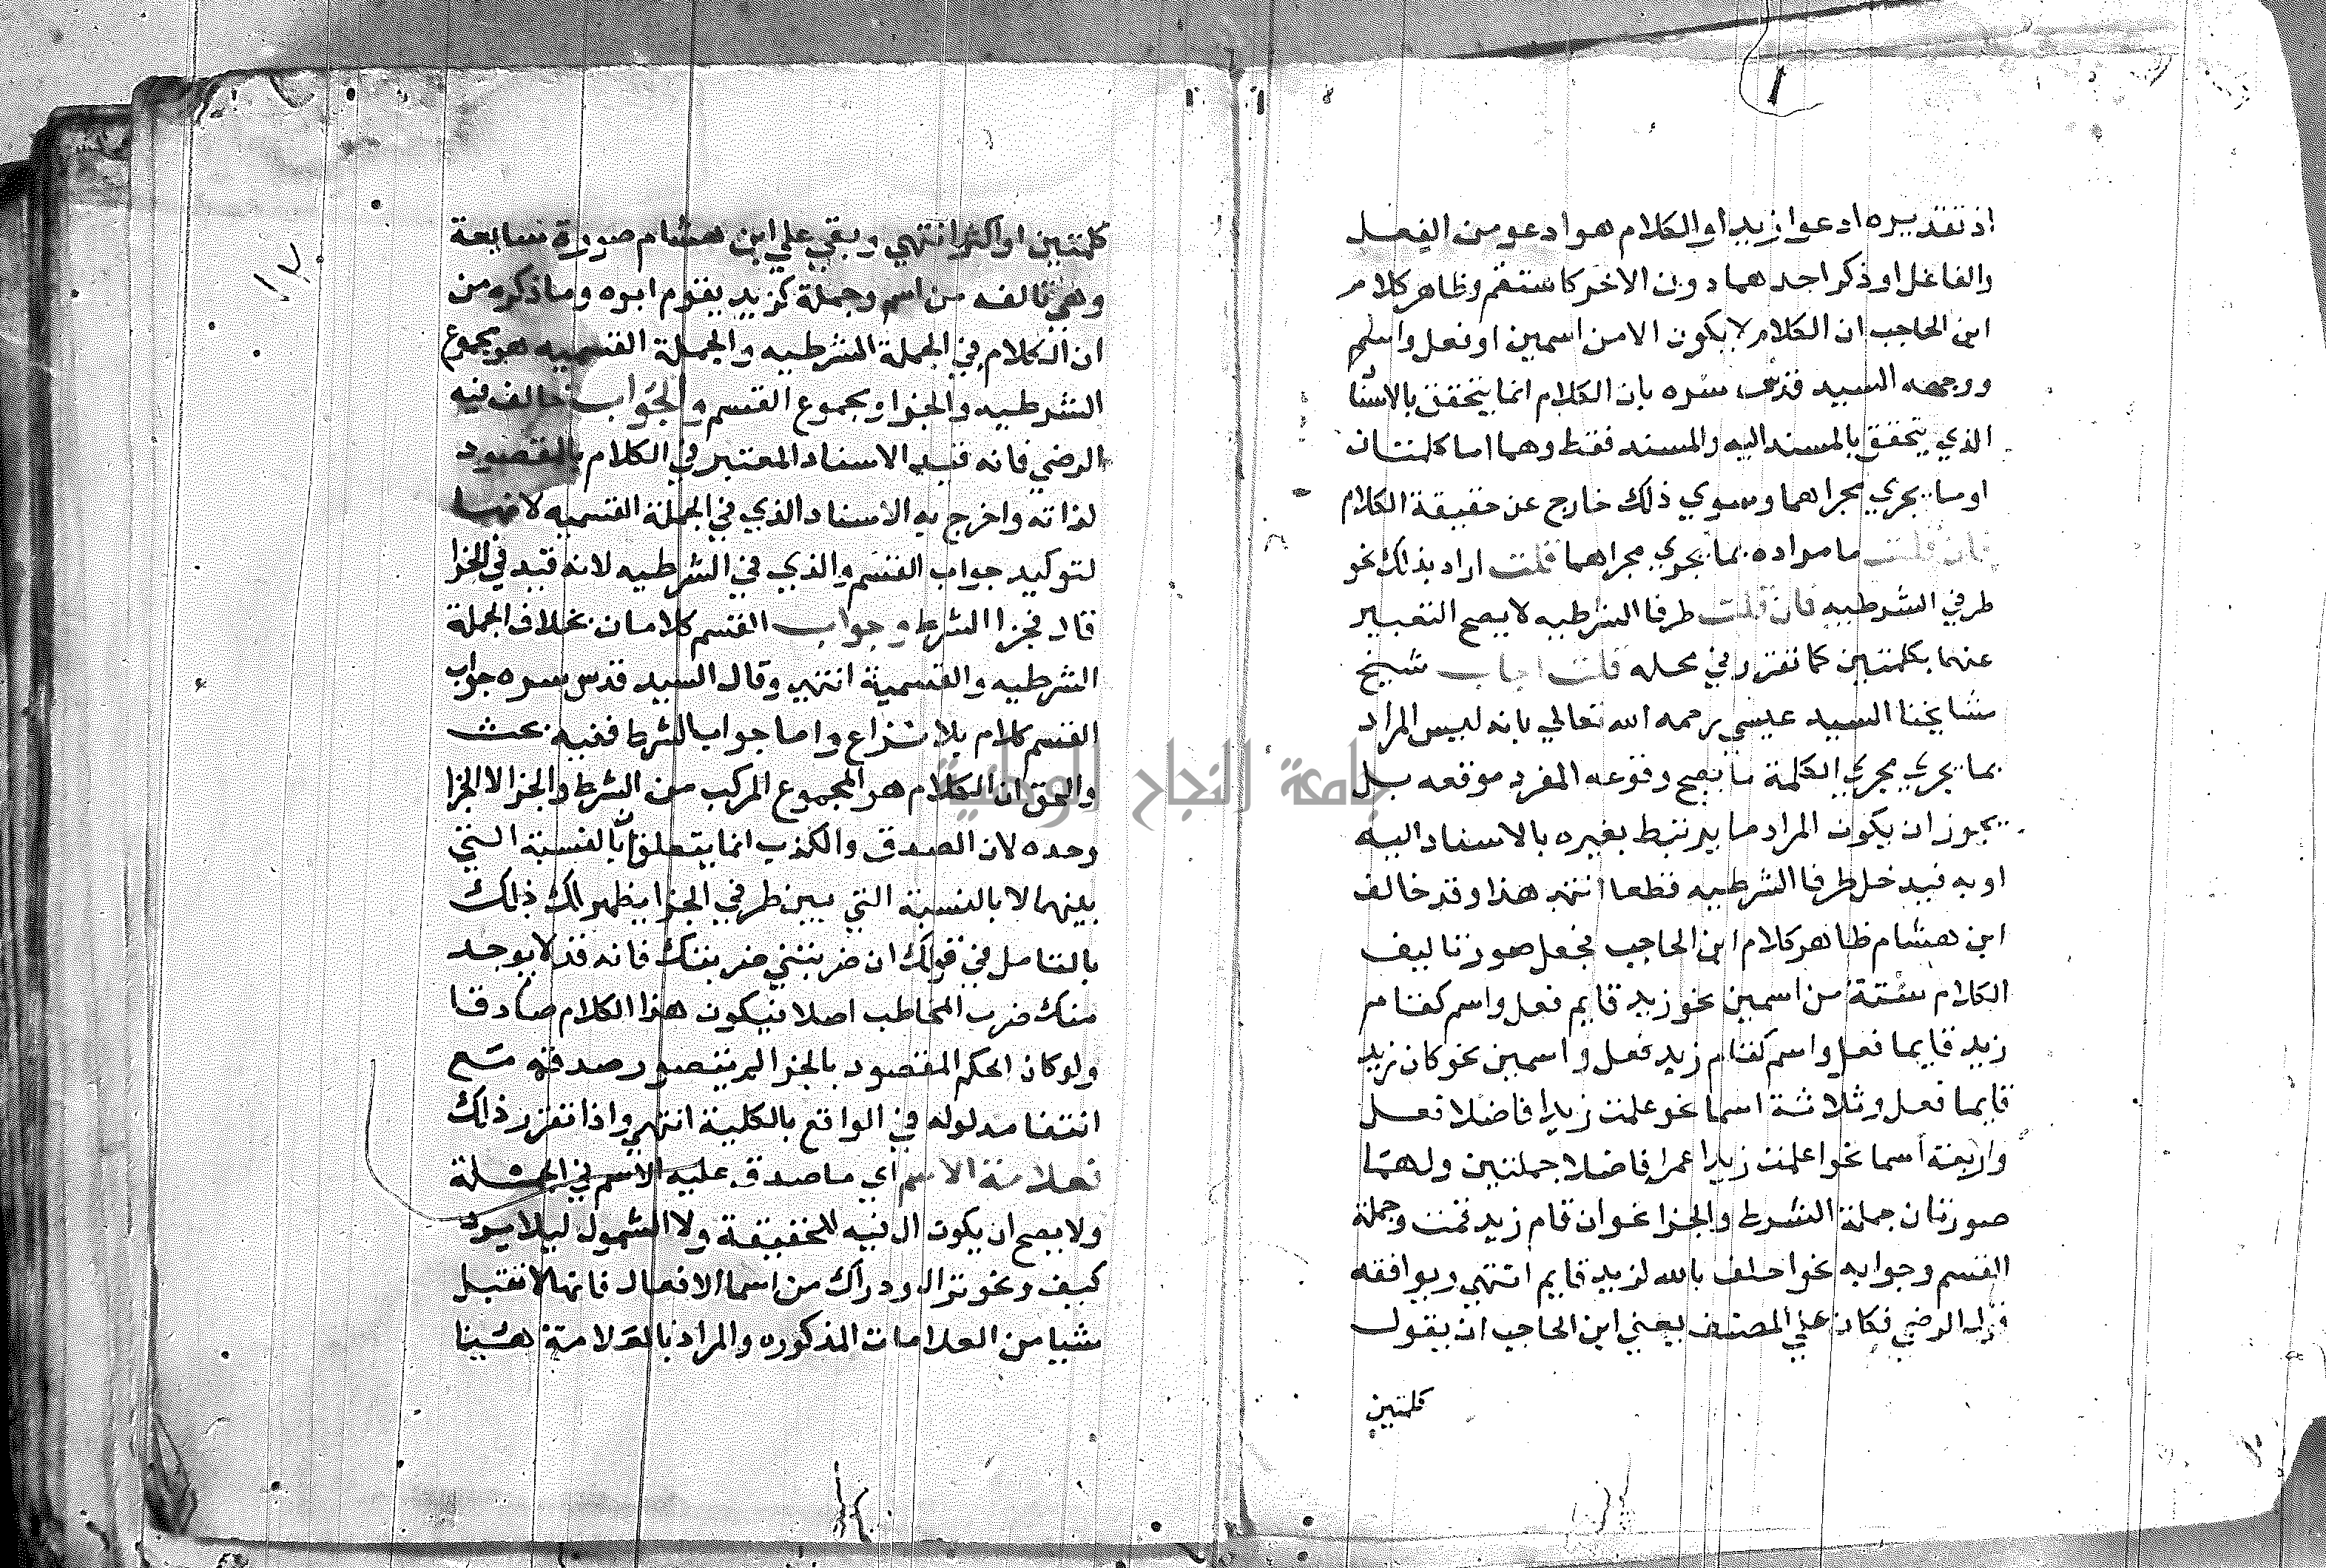 اذ تقديره ادعوا زيدا والكلام هو ادعو من الفعل
والفاعل او ذكر احدهما دون الاخر كاستقم وظاهر كلام
ابن الحاجب ان الكلام لا يكون الا من اسمين او فعل واسم
ووجهه السيد قدس سره بان الكلام انما يتحقق بالاسناد
الذي يتحقق بالمسند اليه والمسند فقط وهما اما كلمتان
او ما يجري مجراهما وسوي ذلك خارج عن حقيقة الكلام
فان قلت ما مراده بما يجري مجراهما قلت اراد بذلك نحو
طرفي الشرطيه فان قلت طرفا الشرطيه لا يصح التعبير
عنهما بكلمتين كما تقرر في محله قلت اجاب شيخ
مشايخنا السيد عيسي رحمه الله تعالي بانه ليس المراد
بما يجري مجري الكلمة ما يصح وقوعه المفرد موقعه بل
يجوز ان يكون المراد ما يرتبط بغيره بالاسناد اليه
او به فيدخل طرفا الشرطيه قطعا انتهي هذا وقد خالف
ابن هشام ظاهر كلام ابن الحاجب فجعل صور تاليف
الكلام ستة من اسمين نحو زيد قايم فعل واسم كقام
زيد قايما فعل واسم كقام زيد فعل واسمين نحو كان زيد
قايما فعل وثلاثة اسما نحو علمت زيدا فاضلا فعل
واربعة اسما نحو اعلمت زيدا عمرا فاضلا جملتين ولهما
صورتان جملة الشرط والجزا نحو ان قام زيد قمت وجملة
القسم وجوابه نحو احلف بالله لزيد قايم انتهي ويوافقه
قول الرضي فكان علي المصنف يعني ابن الحاجب ان يقول
كلمتين
كلمتين او اكثر انتهي وبقي علي ابن هشام صورة سابعة
وهي تالفه من اسم وجملة كزيد يقوم ابوه وما ذكره من
ان الكلام في الجملة الشرطيه والجملة القسميه هو مجموع
الشرطيه والجزا ومجموع القسم والجواب خالف فيه
الرضي فانه قيد الاسناد المعتبر في الكلام بالمقصود
لذاته واخرج به الاسناد الذي في الجملة القسميه لانها
لتوكيد جواب القسم والذي في الشرطيه لانه قيد في الجزا
قال فجزا الشرط وجواب القسم كلامان بخلاف الجملة
الشرطيه والقسمية انتهي وقال السيد قدس سره جواب
القسم كلام بلا نزاع واما جواب الشرط ففيه بحث
والحق ان الكلام هو المجموع المركب من الشرط والجزا لا الجزا
وحده لان الصدق والكذب انما يتعلق بالنسبة التي
بينهما لا بالنسبة التي بين طرفي الجزا يظهر لك ذلك
بالتامل في قولك ان ضربتني ضربتك فانه قد لا يوجد
منك ضرب المخاطب اصلا فيكون هذا الكلام صادقا
ولو كان الحكم المقصود بالجزا لم يتصور صدقه مع
انتفا مدلوله في الواقع بالكلية انتهي واذا تقرر ذلك
فعلامة الاسم اي ما صدق عليه الاسم في الجملة
ولا يصح ان يكون ال فيه للحقيقة ولا الشمول ليلا يرد
كيف ونحو نزال ودراك من اسما الافعال فانها لا تقبل
شيا من العلامات المذكوره والمراد بالعلامة هنا
جامعة النجاح الوطنية